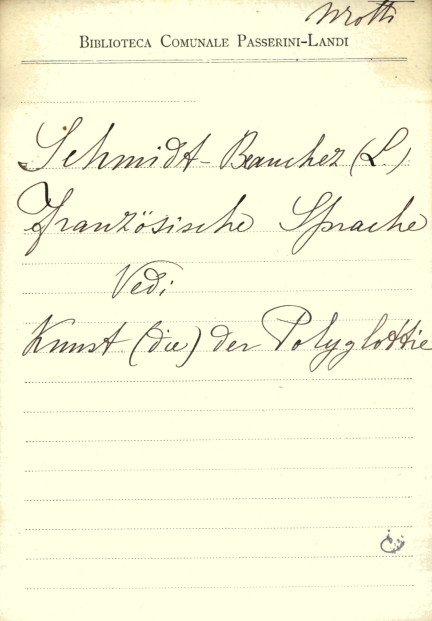 BIBLIOTECA COMUNALE PASSERINI-LANDI
Schmidt-Beauchez (L.)
Französische Sprache
Vedi
Kunst (die) der Polyglottie